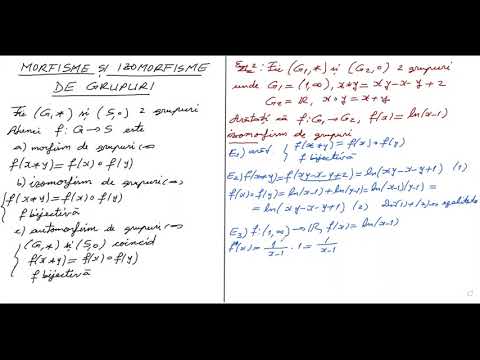 MORFISME ȘI IZOMORFISME
DE GRUPURI
Fie (G,*) și (S,o) 2 grupuri
Atunci f: G→S este
a) morfism de grupuri ⇔
f(x*y)=f(x)∘f(y)
b) izomorfism de grupuri ⇔
{ f(x*y)=f(x)∘f(y)
f bijectivă
c) automorfism de grupuri ⇔
{ (G,*) și (S,o) coincid
f(x*y)=f(x)∘f(y)
f bijectivă
: Fie (G₁,*) și (G₂,o) 2 grupuri
unde G₁=(1,∞), x*y=xy-x-y+2
G₂=ℝ, x∘y=x+y
Arătați că f:G₁→G₂, f(x)=ln(x-1)
izomorfism de grupuri
E₁) arăt { f(x*y)=f(x)∘f(y)
f bijectivă
E₂) f(x*y)=f(xy-x-y+2)=ln(xy-x-y+1) (1)
f(x)∘f(y)=ln(x-1)+ln(y-1)=ln(x-1)(y-1)=
=ln(xy-x-y+1) (2) (1)+(2)⇒ egalitate
E₃) f:(1,∞)→ℝ, f(x)=ln(x-1)
f'(x)=1/(x-1)·1=1/(x-1)